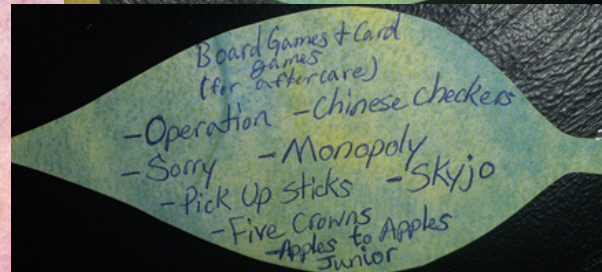 Board Games + Card
games
(for aftercare)
-Operation -Chinese checkers
-Sorry -Monopoly
-Pick Up sticks -Skyjo
-Five Crowns
-Apples to Apples
Junior